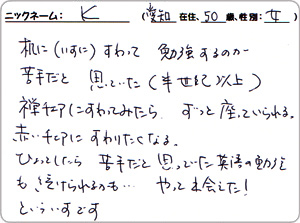 ニックネーム: K (愛知 在住、50 歳、性別: 女 )
机に (いすに) すわって 勉強するのが
苦手だと 思っていた (半世紀以上)
禅チェアにすわってみたら ずっと座っていられる。
赤いチェアに すわりたくなる。
ひょっとしたら 苦手だと思っていた英語の勉強
も 続けられるのも… やっと出会えた!
といういすです